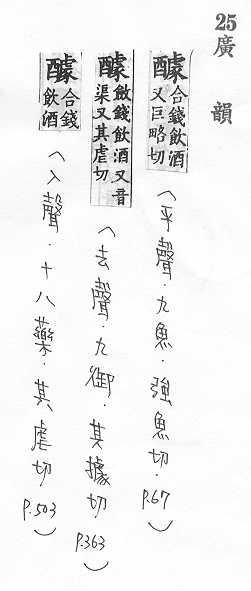 25廣韻
醵合錢飲酒又巨略切
（平聲．九魚．強魚切．P.67）
醵斂錢飲酒又音渠又其虐切
（去聲．九御．其據切．P.363）
醵合錢飲酒
（入聲．十八藥．其虐切．P.503）